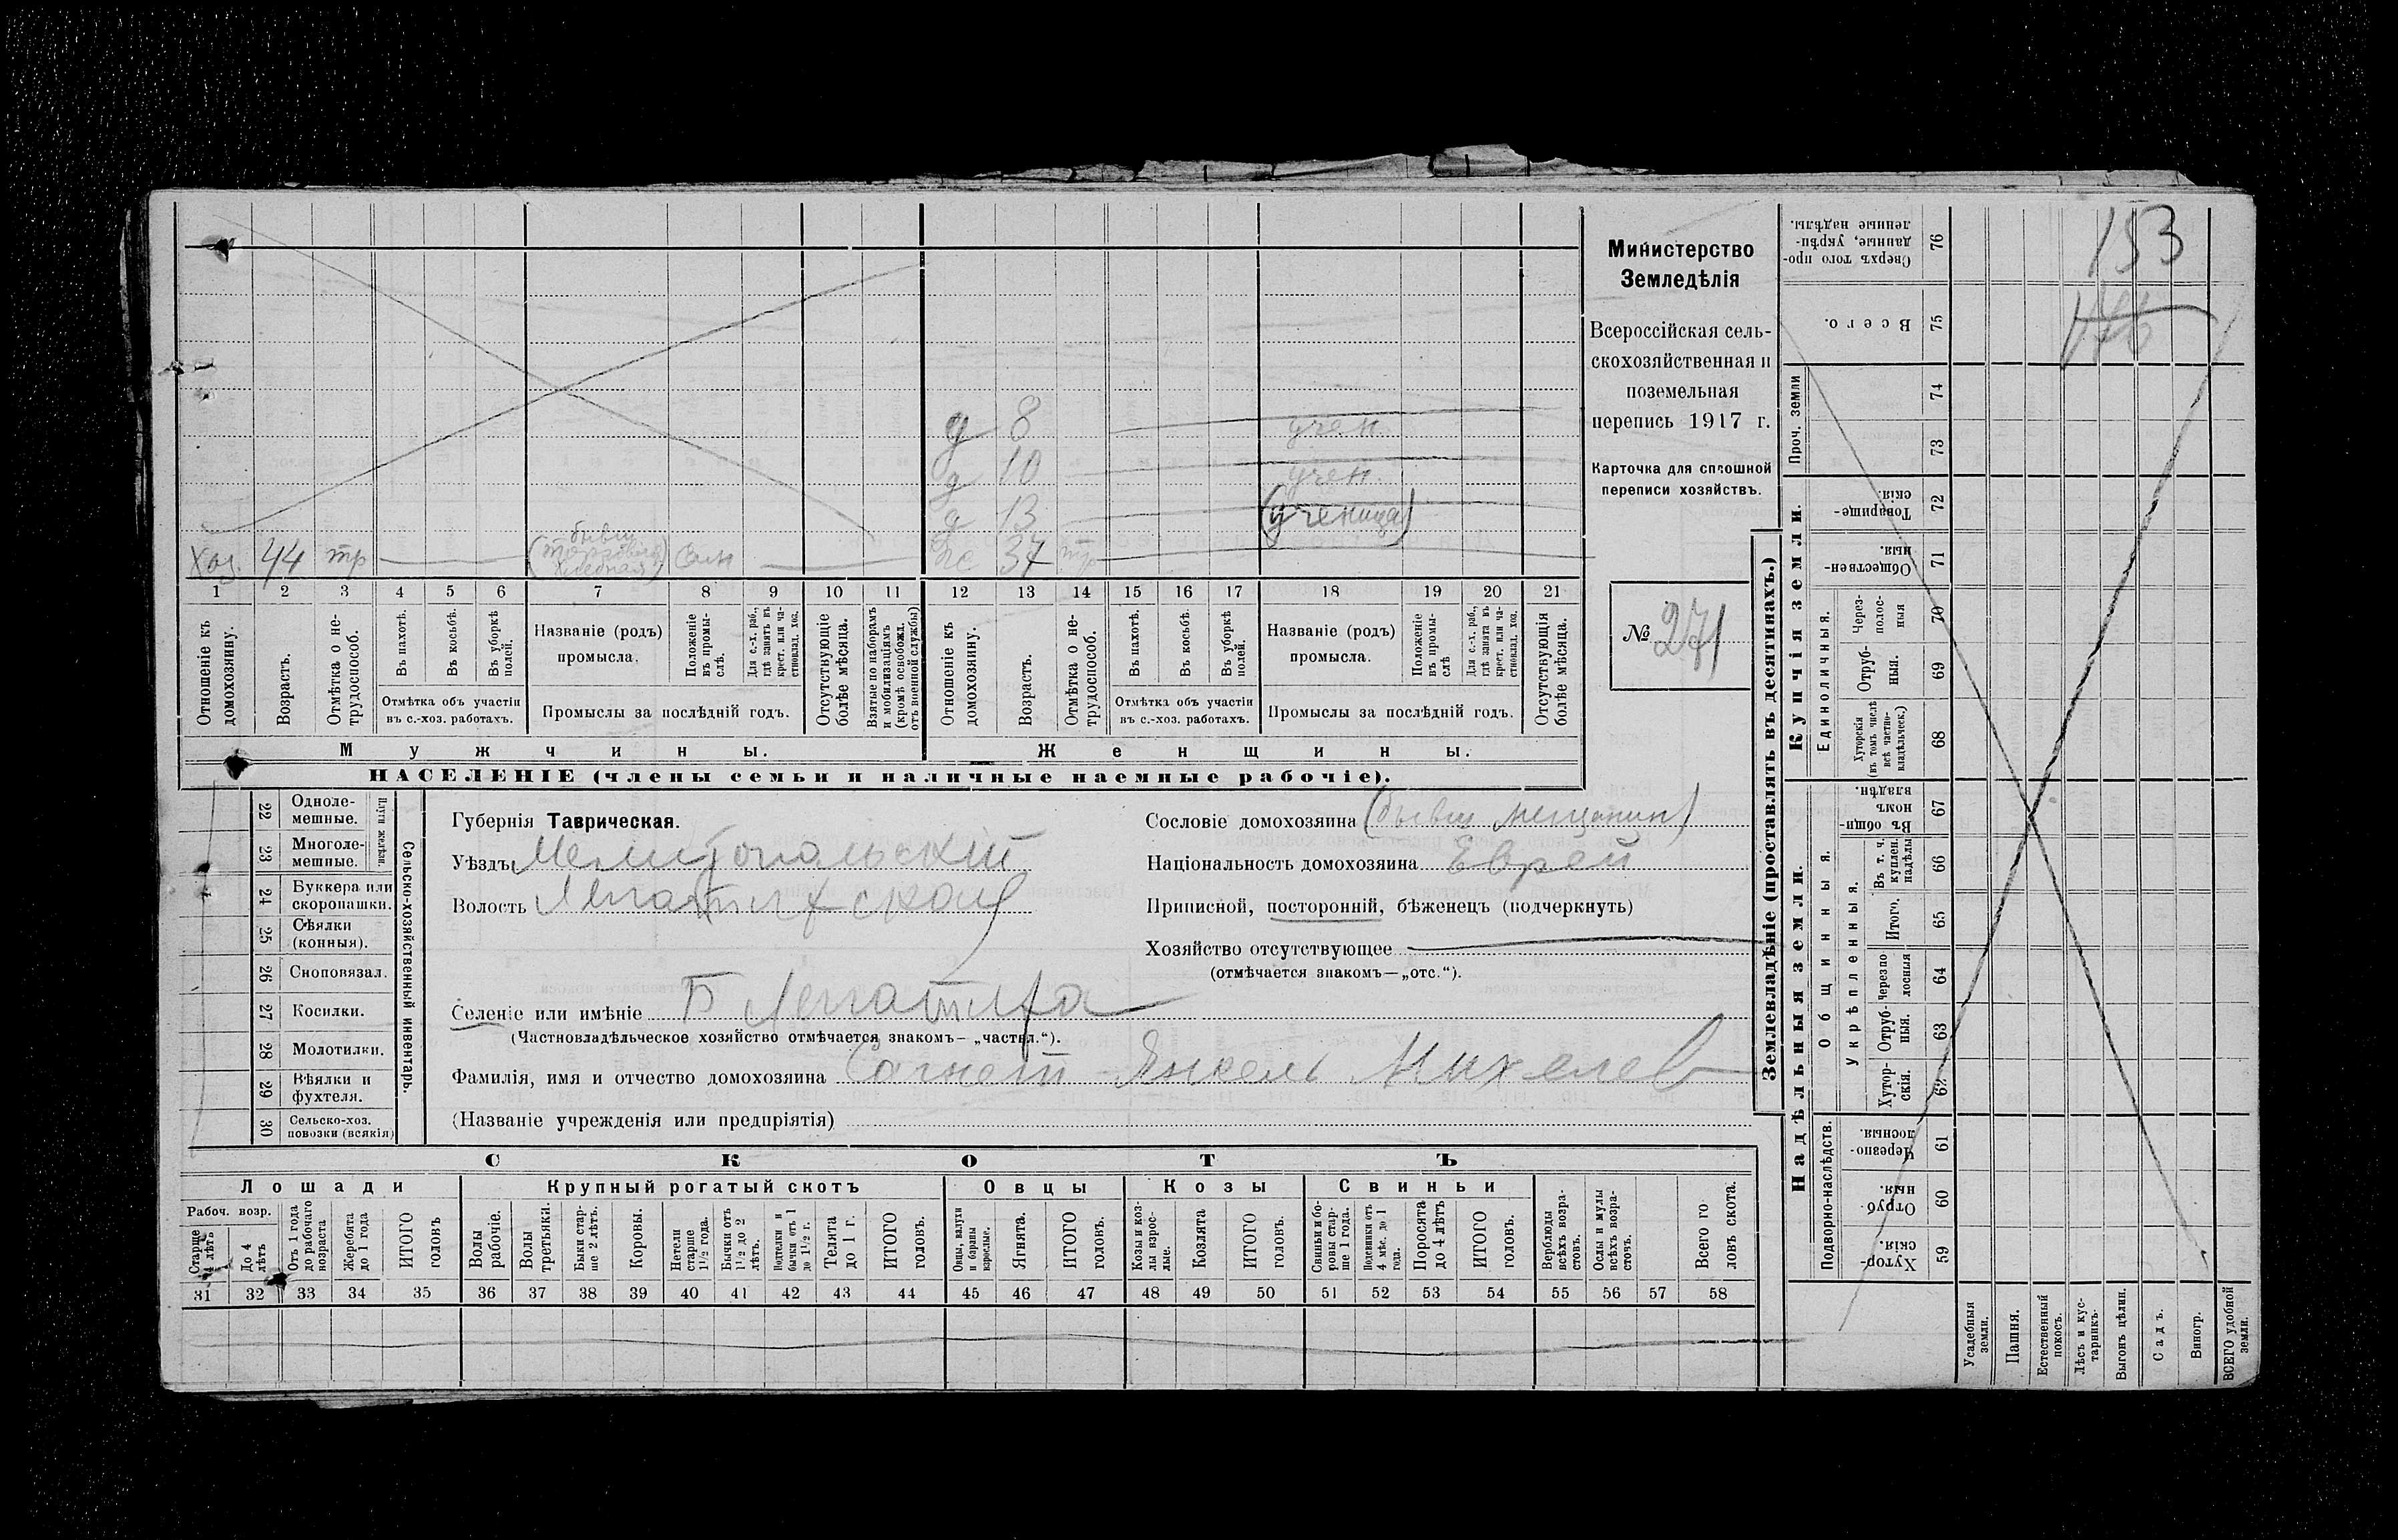 Министерство
Земледѣлія
Всероссійская сель-
скохозяйственная и
поземельная
перепись 1917 г.
Карточка для сплошной
переписи хозяйствъ.
№ 271
153
д 8 учен.
д 10 учен.
д 13 (ученица)
Хоз. 44 тр
37 тр
1 2 3 4 5 6 7 8 9 10 11 12 13 14 15 16 17 18 19 20 21
Отношеніе къ домохозяину.
Возрастъ.
Отмѣтка о не-трудоспособ.
Въ пахотѣ.
Въ косьбѣ.
Въ уборкѣ полей.
Отмѣтка объ участіи
въ с.-хоз. работахъ.
Названіе (родъ)
промысла.
Положеніе въ промы-слѣ.
Для с.-х. раб., гдѣ занятъ въ крест. или ча-стновлад. хоз.
Промыслы за послѣдній годъ.
Отсутствующіе болѣе мѣсяца.
Взятые по наборамъ и мобилизаціямъ (кромѣ освобожд. отъ военной службы)
Отношеніе къ домохозяину.
Возрастъ.
Отмѣтка о не-трудоспособ.
Въ пахотѣ.
Въ косьбѣ.
Въ уборкѣ полей.
Отмѣтка объ участіи
въ с.-хоз. работахъ.
Названіе (родъ)
промысла.
Положеніе въ промы-слѣ
Для с.-х. раб., гдѣ занята въ крест. или ча-стновлад. хоз.
Промыслы за послѣдній годъ.
Отсутствующія болѣе мѣсяца.
Мужчины.
Женщины.
НАСЕЛЕНІЕ (члены семьи и наличные наемные рабочіе).
22 Однолемешные.
23 Многолемешные.
Плуги желѣзн.
24 Буккера или скоропашки.
25 Сѣялки (конныя).
26 Сноповязал.
27 Косилки.
28 Молотилки.
29 Вѣялки и фухтеля.
30 Сельско-хоз. повозки (всякія)
Сельско-хозяйственный инвентарь.
Губернія Таврическая.
Уѣздъ Мелитопольскій
Волость Лепатихская
Селеніе или имѣніе Б Лепатиха
(Частновладѣльческое хозяйство отмѣчается знакомъ— „частвл.“).
Фамилія, имя и отчество домохозяина Сагнет Янкель Михелев
(Названіе учрежденія или предпріятія)
Сословіе домохозяина (бывш мещанин)
Національность домохозяина Еврей
Приписной, посторонній, бѣженецъ (подчеркнуть)
Хозяйство отсутствующее
(отмѣчается знакомъ—„отс.“).
СКОТЪ
Лошади
Рабоч. возр.
Старше 4 лѣтъ
До 4 лѣтъ
Отъ 1 года до рабочаго возраста
Жеребята до 1 года
ИТОГО головъ
Крупный рогатый скотъ
Волы рабочіе.
Волы третьяки.
Быки стар-ше 2 лѣтъ.
Коровы.
Нетели старше 1½ года.
Бычки отъ 1½ до 2 лѣтъ.
Подтелки и бычки отъ 1 до 1½ г.
Телята до 1 г.
ИТОГО головъ.
Овцы
Овцы, валухи и бараны взрослые.
Ягнята.
ИТОГО головъ.
Козы
Козы и коз-лы взрос-лые.
Козлята
ИТОГО головъ.
Свиньи
Свиньи и бо-ровы стар-ше 1 года.
Подсвинки отъ 4 мѣс. до 1 года.
Поросята до 4 лѣтъ
ИТОГО головъ.
Верблюды всѣхъ возра-стовъ.
Ослы и мулы всѣхъ возра-стовъ.
Всего го-ловъ скота.
31 32 33 34 35 36 37 38 39 40 41 42 43 44 45 46 47 48 49 50 51 52 53 54 55 56 57 58
Землевладѣніе (проставлять въ десятинахъ.)
Сверхъ того про-данные, укрѣп-ленные надѣлы. 76
Всего. 75
Проч. земли
74
73
Купчія земли.
Товарище-скія. 72
Обществен-ныя. 71
Единоличныя.
Через-полос-ныя 70
Отруб-ныя. 69
Хуторскія (въ томъ числѣ всѣ частно-владѣльческ.) 68
Надѣльныя земли.
Общинныя.
Въ общин-номъ владѣн. 67
Укрѣпленныя.
Въ т. ч. куплен. надѣлы 66
Итого. 65
Черезпо-лосныя 64
Отруб-ныя. 63
Хутор-скія. 62
Подворно-наслѣдств.
Черезпо-лосныя. 61
Отруб-ныя. 60
Хутор-скія. 59
Усадебныя земли.
Пашня.
Естественный покосъ.
Лѣсъ и кус-тарникъ.
Выгонъ цѣлин.
Садъ.
Виногр.
ВСЕГО удобной земли.